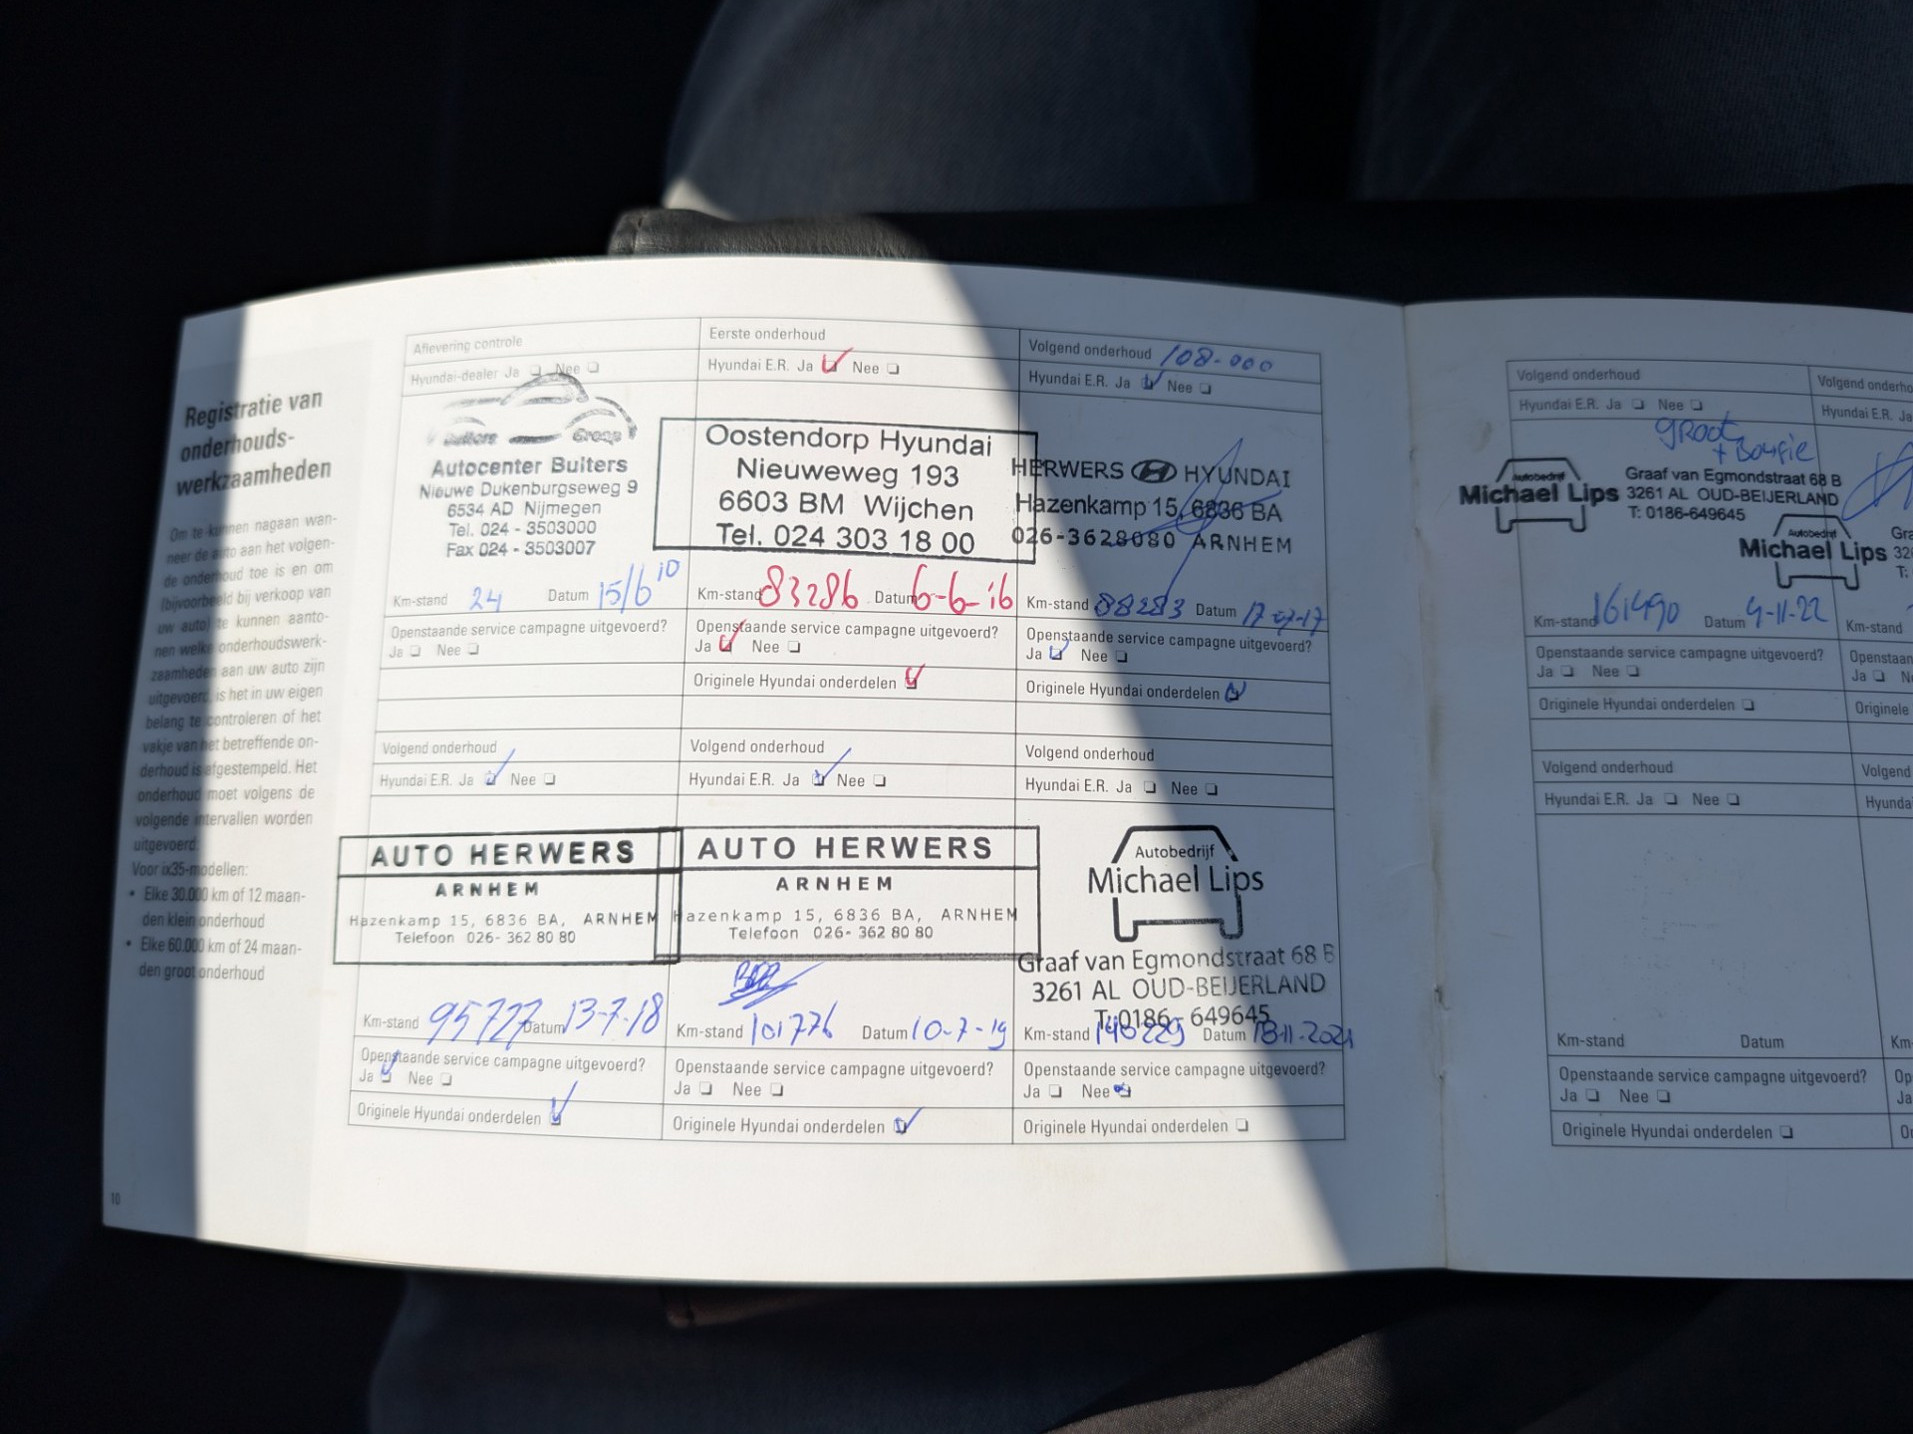 Registratie van
onderhouds-
werkzaamheden
Om te kunnen nagaan wan-
neer de auto aan het volgen-
de onderhoud toe is en om
(bijvoorbeeld bij verkoop van
uw auto) te kunnen aanto-
nen welke onderhoudswerk-
zaamheden aan uw auto zijn
uitgevoerd, is het in uw eigen
belang te controleren of het
vakje van het betreffende on-
derhoud is afgestempeld. Het
onderhoud moet volgens de
volgende intervallen worden
uitgevoerd:
Voor ix35-modellen:
• Elke 30.000 km of 12 maan-
den klein onderhoud
• Elke 60.000 km of 24 maan-
den groot onderhoud
10
Aflevering controle
Hyundai-dealer Ja Nee
Buiters Groep
Autocenter Buiters
Nieuwe Dukenburgseweg 9
6534 AD Nijmegen
Tel. 024 - 3503000
Fax 024 - 3503007
Km-stand 24 Datum 15/6 10
Openstaande service campagne uitgevoerd?
Ja Nee
Eerste onderhoud
Hyundai E.R. Ja Nee
Oostendorp Hyundai
Nieuweweg 193
6603 BM Wijchen
Tel. 024 303 18 00
Km-stand 83286 Datum 6-6-'16
Openstaande service campagne uitgevoerd?
Ja Nee
Originele Hyundai onderdelen
Volgend onderhoud 108-000
Hyundai E.R. Ja Nee
HERWERS HYUNDAI
Hazenkamp 15, 6836 BA
026-3628080 ARNHEM
Km-stand 88283 Datum 17-07-17
Openstaande service campagne uitgevoerd?
Ja Nee
Originele Hyundai onderdelen
Volgend onderhoud
Hyundai E.R. Ja Nee
AUTO HERWERS
ARNHEM
Hazenkamp 15, 6836 BA, ARNHEM
Telefoon 026- 362 80 80
Km-stand 95727 Datum 13-7-18
Openstaande service campagne uitgevoerd?
Ja Nee
Originele Hyundai onderdelen
Volgend onderhoud
Hyundai E.R. Ja Nee
AUTO HERWERS
ARNHEM
Hazenkamp 15, 6836 BA, ARNHEM
Telefoon 026- 362 80 80
Km-stand 101776 Datum 10-7-19
Openstaande service campagne uitgevoerd?
Ja Nee
Originele Hyundai onderdelen
Volgend onderhoud
Hyundai E.R. Ja Nee
Autobedrijf
Michael Lips
Graaf van Egmondstraat 68 B
3261 AL OUD-BEIJERLAND
T: 0186 - 649645
Km-stand 140229 Datum 18-11-2021
Openstaande service campagne uitgevoerd?
Ja Nee
Originele Hyundai onderdelen
Volgend onderhoud
Hyundai E.R. Ja Nee
groot
+ Bougie
Autobedrijf
Michael Lips
Graaf van Egmondstraat 68 B
3261 AL OUD-BEIJERLAND
T: 0186-649645
Km-stand 161490 Datum 9-11-22
Openstaande service campagne uitgevoerd?
Ja Nee
Originele Hyundai onderdelen
Volgend onderhoud
Hyundai E.R. Ja Nee
Km-stand Datum
Openstaande service campagne uitgevoerd?
Ja Nee
Originele Hyundai onderdelen
Volgend
Hyundai E.R. Ja
Autobedrijf
Michael Lips
Km-stand
Ja
Originele
Volgend
Ja